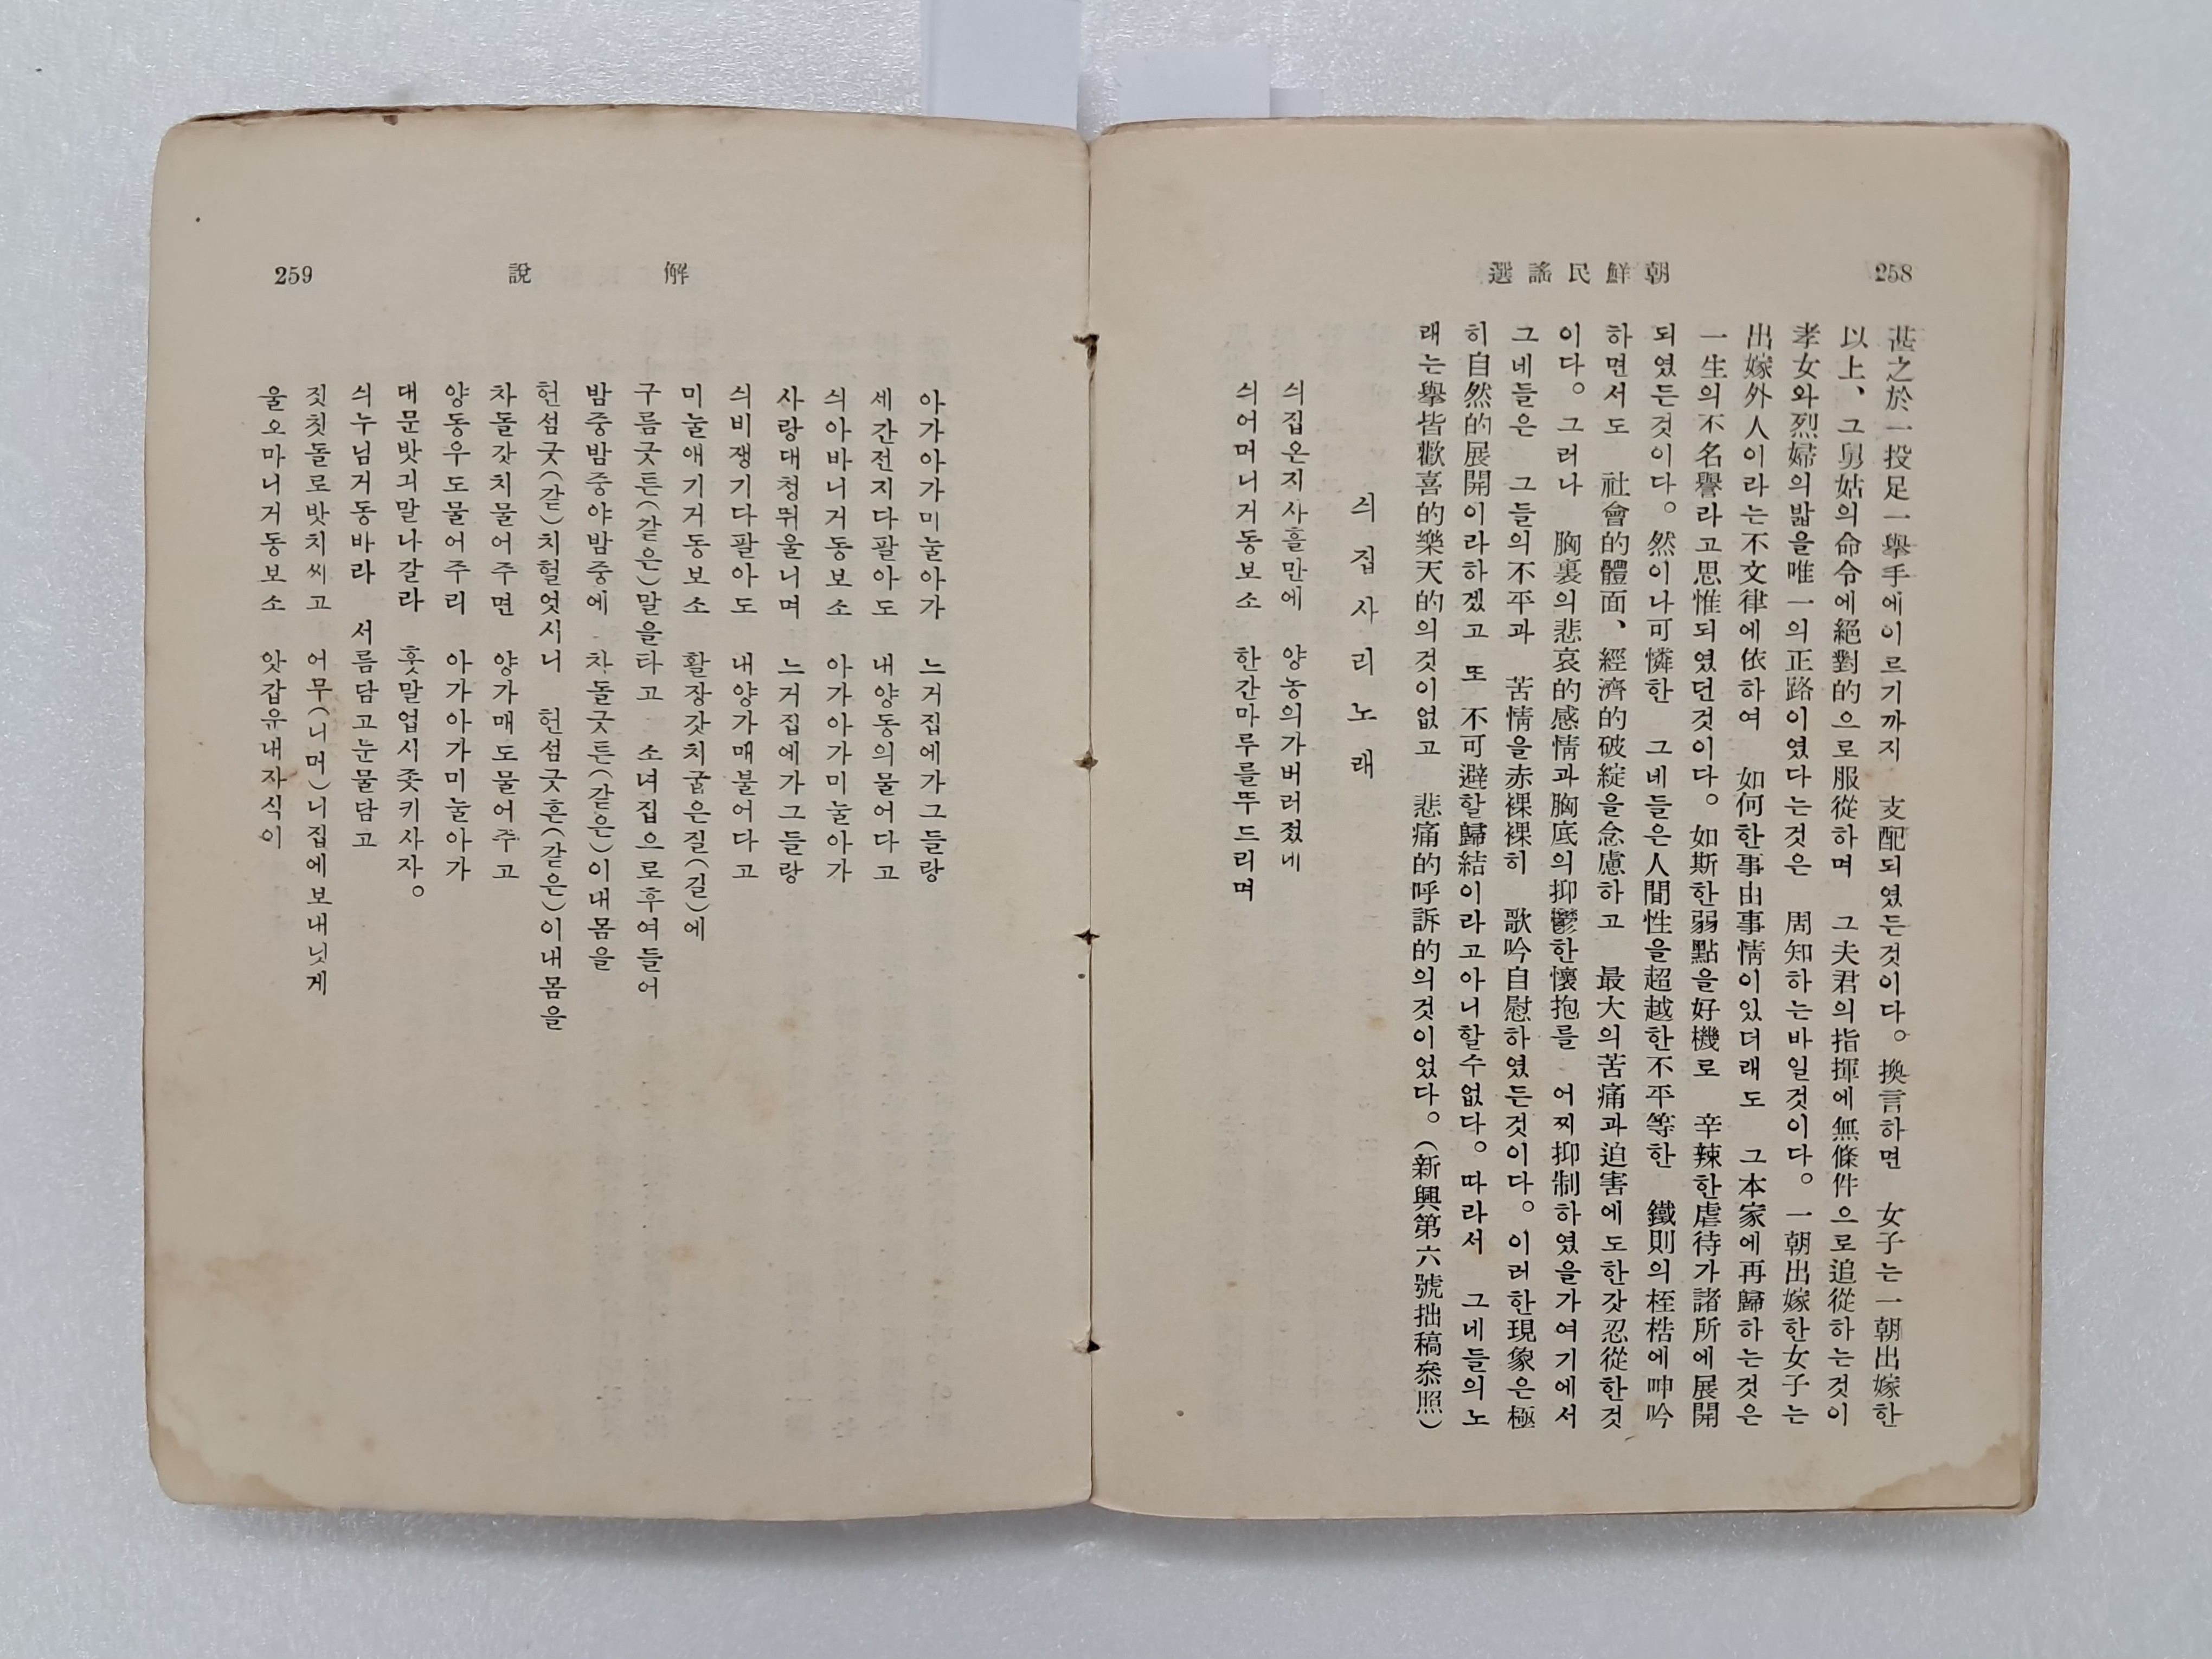 258
朝鮮民謠選
甚之於一投足一擧手에이르기까지 支配되였든것이다。換言하면 女子는一朝出嫁한
以上、그舅姑의命令에絕對的으로服從하며 그夫君의指揮에無條件으로追從하는것이
孝女와烈婦의밟을唯一의正路이였다는것은 周知하는바일것이다。一朝出嫁한女子는
出嫁外人이라는不文律에依하여 如何한事由事情이있더래도 그本家에再歸하는것은
一生의不名譽라고思惟되였던것이다。如斯한弱點을好機로 辛辣한虐待가諸所에展開
되였든것이다。然이나可憐한 그네들은人間性을超越한不平等한 鐵則의桎梏에呻吟
하면서도 社會的體面、經濟的破綻을念慮하고 最大의苦痛과迫害에도한갓忍從한것
이다。그러나 胸裏의悲哀的感情과胸底의抑鬱한懷抱를 어찌抑制하였을가여기에서
그네들은 그들의不平과 苦情을赤裸裸히 歌吟自慰하였든것이다。이러한現象은極
히自然的展開이라하겠고 또 不可避할歸結이라고아니할수없다。따라서 그네들의노
래는擧皆歡喜的樂天的의것이없고 悲痛的呼訴的의것이었다。(新興第六號拙稿叅照)
싀집사리노래
싀집온지사흘만에 양농의가버러젔네
싀어머니거동보소 한간마루를뚜드리며
259
解說
아가아가미눌아가 느거집에가그들랑
세간전지다팔아도 내양동의물어다고
싀아바니거동보소 아가아가미눌아가
사랑대청뛰울니며 느거집에가그들랑
싀비쟁기다팔아도 내양가매불어다고
미눌애기거동보소 활장갓치굽은질(길)에
구름긋튼(같은)말을타고 소녀집으로후여들어
밤중밤중야밤중에 차돌긋튼(같은)이내몸을
헌섬긋(같)치헐엇시니 헌섬긋흔(같은)이내몸을
차돌갓치물어주면 양가매도물어주고
양동우도물어주리 아가아가미눌아가
대문밧긔말나갈라 훗말업시좃키사자。
싀누님거동바라 서름담고눈물담고
짓칫돌로밧치씨고 어무(니머)니집에보내닛게
울오마니거동보소 앗갑운내자식이